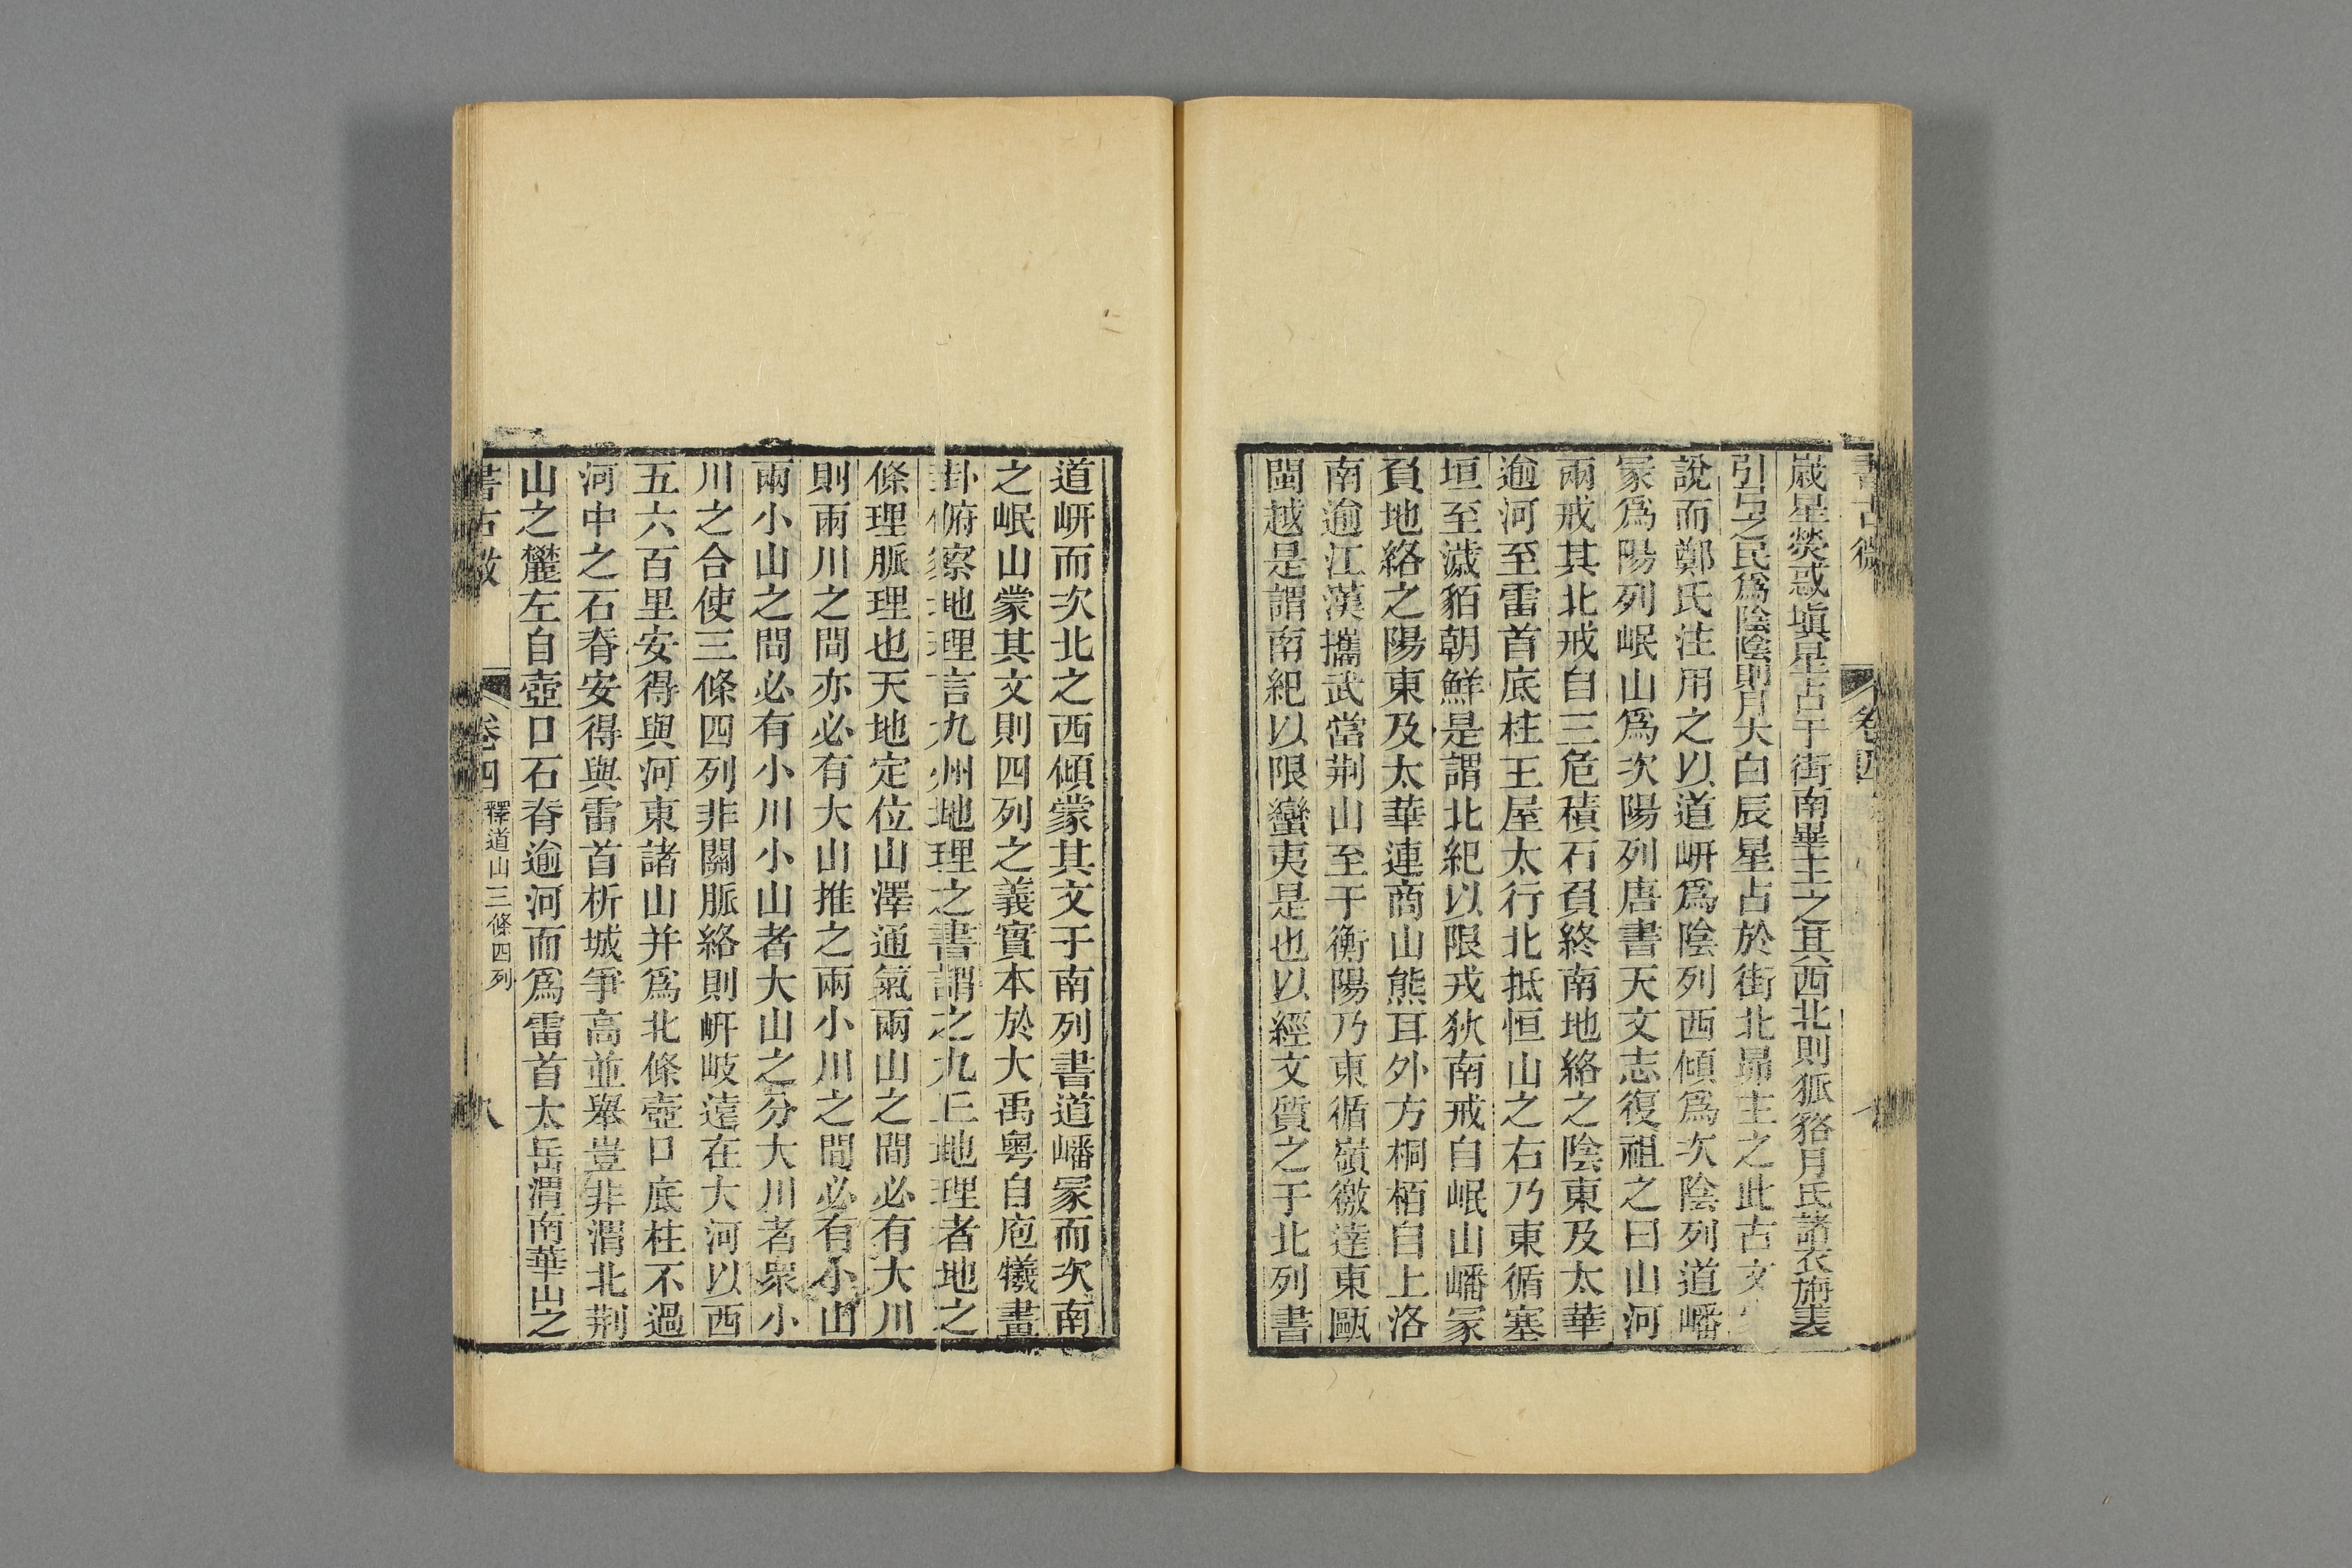 書古微 卷四
歲星熒惑塡星占于街南畢主之其西北則狐貉月氏諸衣旃裘
引弓之民爲陰陰則月大白辰星占於街北昴主之此古文
說而鄭氏注用之以道岍爲陰列西傾爲次陰列道嶓
冢爲陽列岷山爲次陽列唐書天文志復祖之曰山河
兩戒其北戒自三危積石負終南地絡之陰東及太華
逾河至雷首底柱王屋太行北抵恒山之右乃東循塞
垣至濊貊朝鮮是謂北紀以限戎狄南戒自岷山嶓冢
負地絡之陽東及太華連商山熊耳外方桐栢自上洛
南逾江漢攜武當荆山至于衡陽乃東循嶺徼達東甌
閩越是謂南紀以限蠻夷是也以經文質之于北列書
道岍而次北之西傾蒙其文于南列書道嶓冢而次南
之岷山蒙其文則四列之義實本於大禹粤自庖犧畫
卦俯察地理言九州地理之書謂之九丘地理者地之
條理脈理也天地定位山澤通氣兩山之間必有大川
則兩川之間亦必有大山推之兩小川之間必有小山
兩小山之間必有小川小山者大山之分大川者衆小
川之合使三條四列非關脈絡則岍岐遠在大河以西
五六百里安得與河東諸山并爲北條壺口底柱不過
河中之石脊安得與雷首析城爭高並舉豈非渭北荆
山之麓左自壺口石脊逾河而爲雷首太岳渭南華山之
書古微 卷四 釋道山三條四列 八